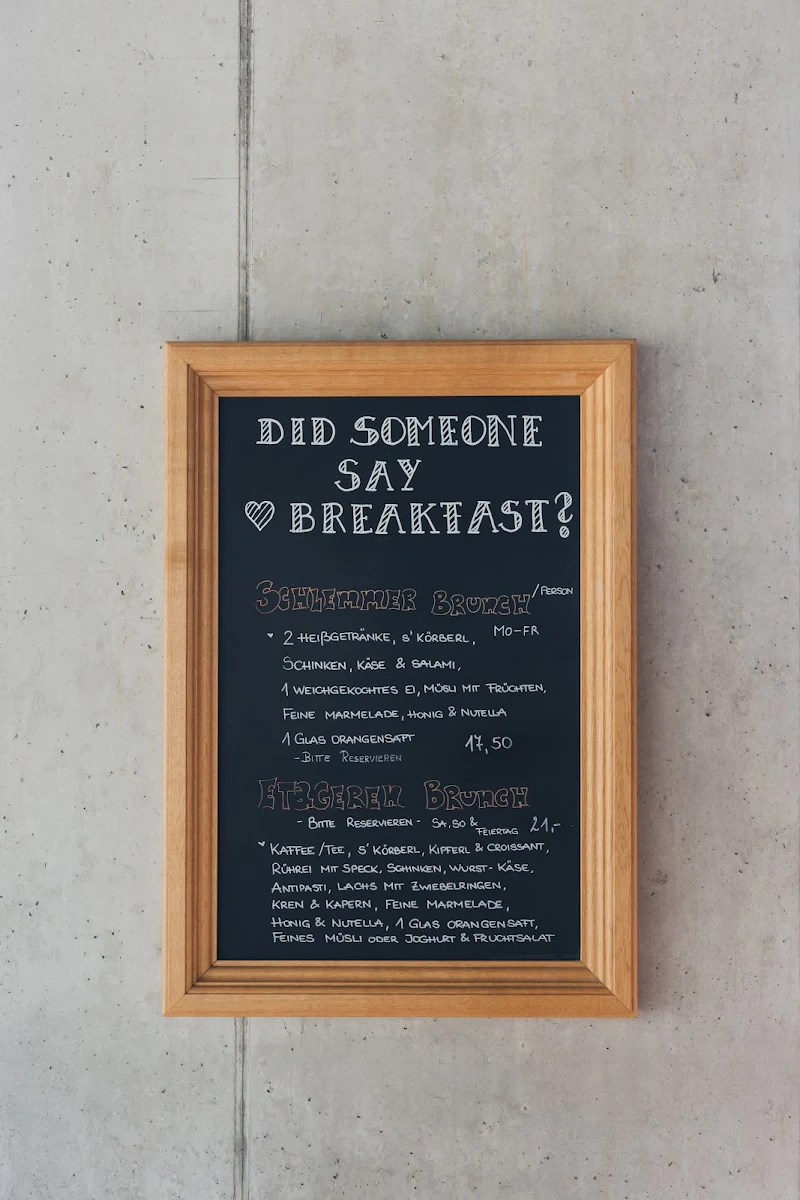 DID SOMEONE
SAY
BREAKFAST?
SCHLEMMER BRUNCH /PERSON
MO-FR
2 HEIßGETRÄNKE, S'KÖRBERL,
SCHINKEN, KÄSE & SALAMI,
1 WEICHGEKOCHTES EI, MÜSLI MIT FRÜCHTEN,
FEINE MARMELADE, HONIG & NUTELLA
1 GLAS ORANGENSAFT 17,50
-BITTE RESERVIEREN
ETAGEREN BRUNCH
- BITTE RESERVIEREN - SA, SO & FEIERTAG 21,-
KAFFEE/TEE, S'KÖRBERL, KIPFERL & CROISSANT,
RÜHREI MIT SPECK, SCHINKEN, WURST- KÄSE,
ANTIPASTI, LACHS MIT ZWIEBELRINGEN,
KREN & KAPERN, FEINE MARMELADE,
HONIG & NUTELLA, 1 GLAS ORANGENSAFT,
FEINES MÜSLI ODER JOGHURT & FRUCHTSALAT